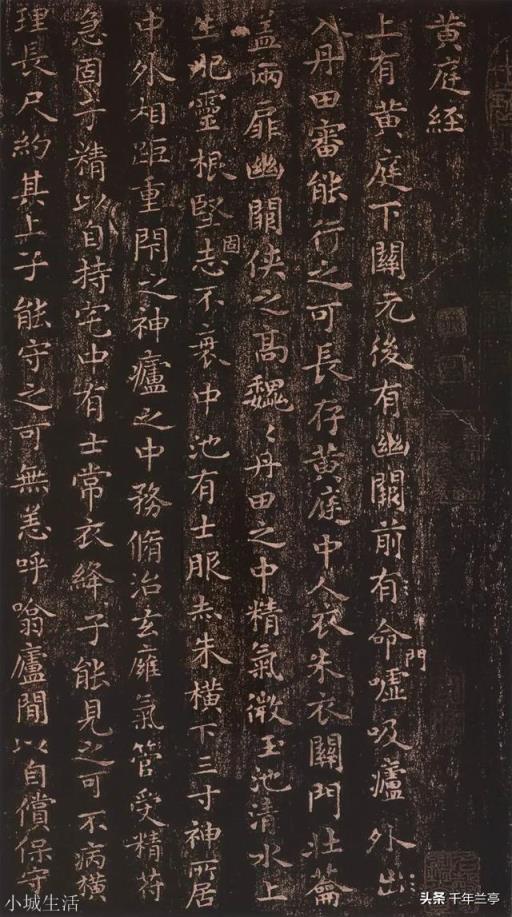 黄庭經
上有黄庭下關元後有幽闕前有命門噓吸廬外出
入丹田審能行之可長存黄庭中人衣朱衣關門壯蘥
盖兩扉幽闕俠之髙魏〻丹田之中精氣微玉池清水上
生肥靈根堅固志不衰中池有士服赤朱横下三寸神所居
中外相距重閇之神廬之中務脩治玄廱氣管受精苻
急固子精以自持宅中有士常衣絳子能見之可不病横
理長尺約其上子能守之可無恙呼噏廬間以自償保守
小城生活
头条 千年兰亭